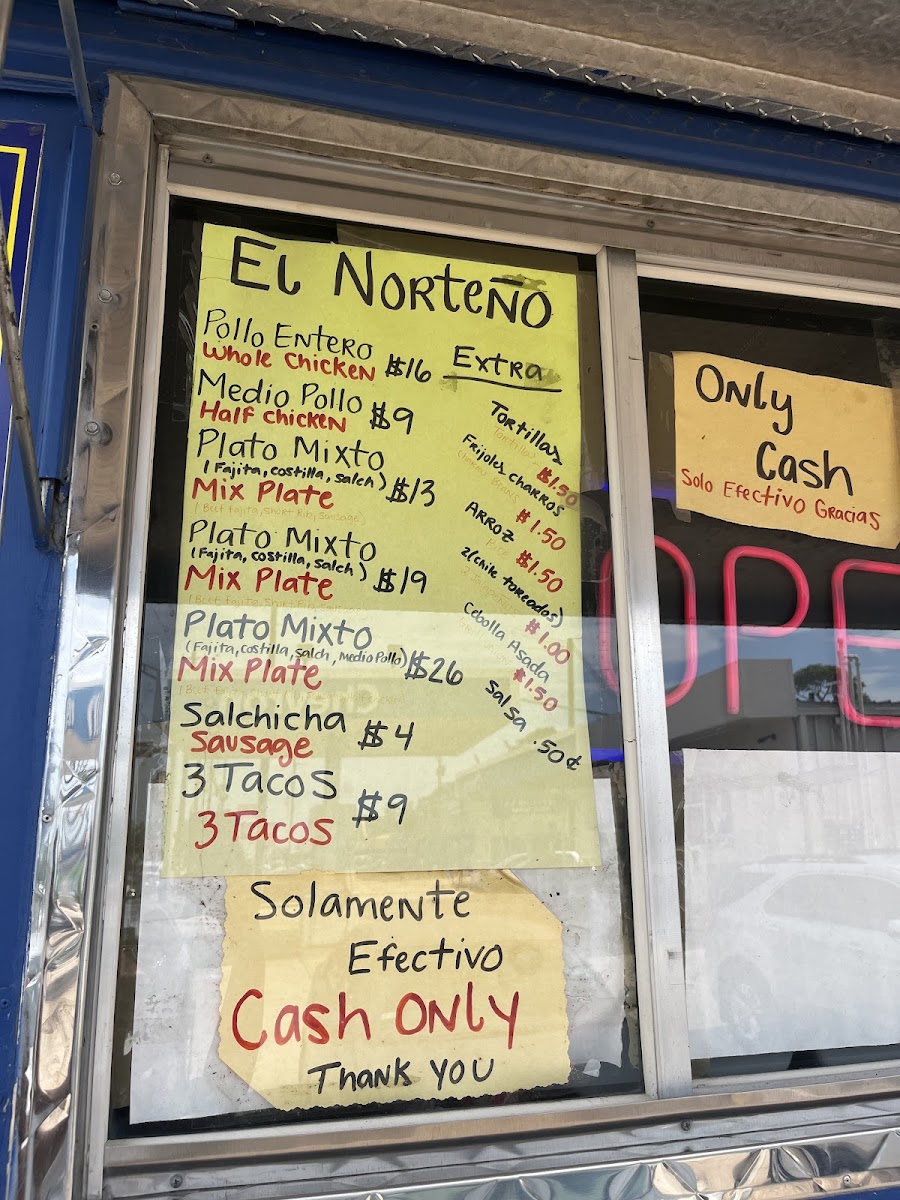 El Norteño
Pollo Entero
Whole Chicken $16
Medio Pollo
Half chicken $9
Plato Mixto
(Fajita, costilla, salch) $13
Mix Plate
(Beef fajita, short Rib, Sausage)
Plato Mixto
(Fajita, costilla, salch) $19
Mix Plate
(Beef fajita, short Rib, Sausage)
Plato Mixto
(Fajita, costilla, salch, medio Pollo) $26
Mix Plate
Salchicha
Sausage $4
3 Tacos
3 Tacos $9
Extra
Tortillas
Tortillas $1.50
Frijoles charros
Charro Beans $1.50
Arroz
Rice $1.50
2(chile toreados)
$1.00
Cebolla Asada
$1.50
Salsa .50¢
Solamente
Efectivo
Cash Only
Thank you
Only
Cash
Solo Efectivo Gracias
OPE